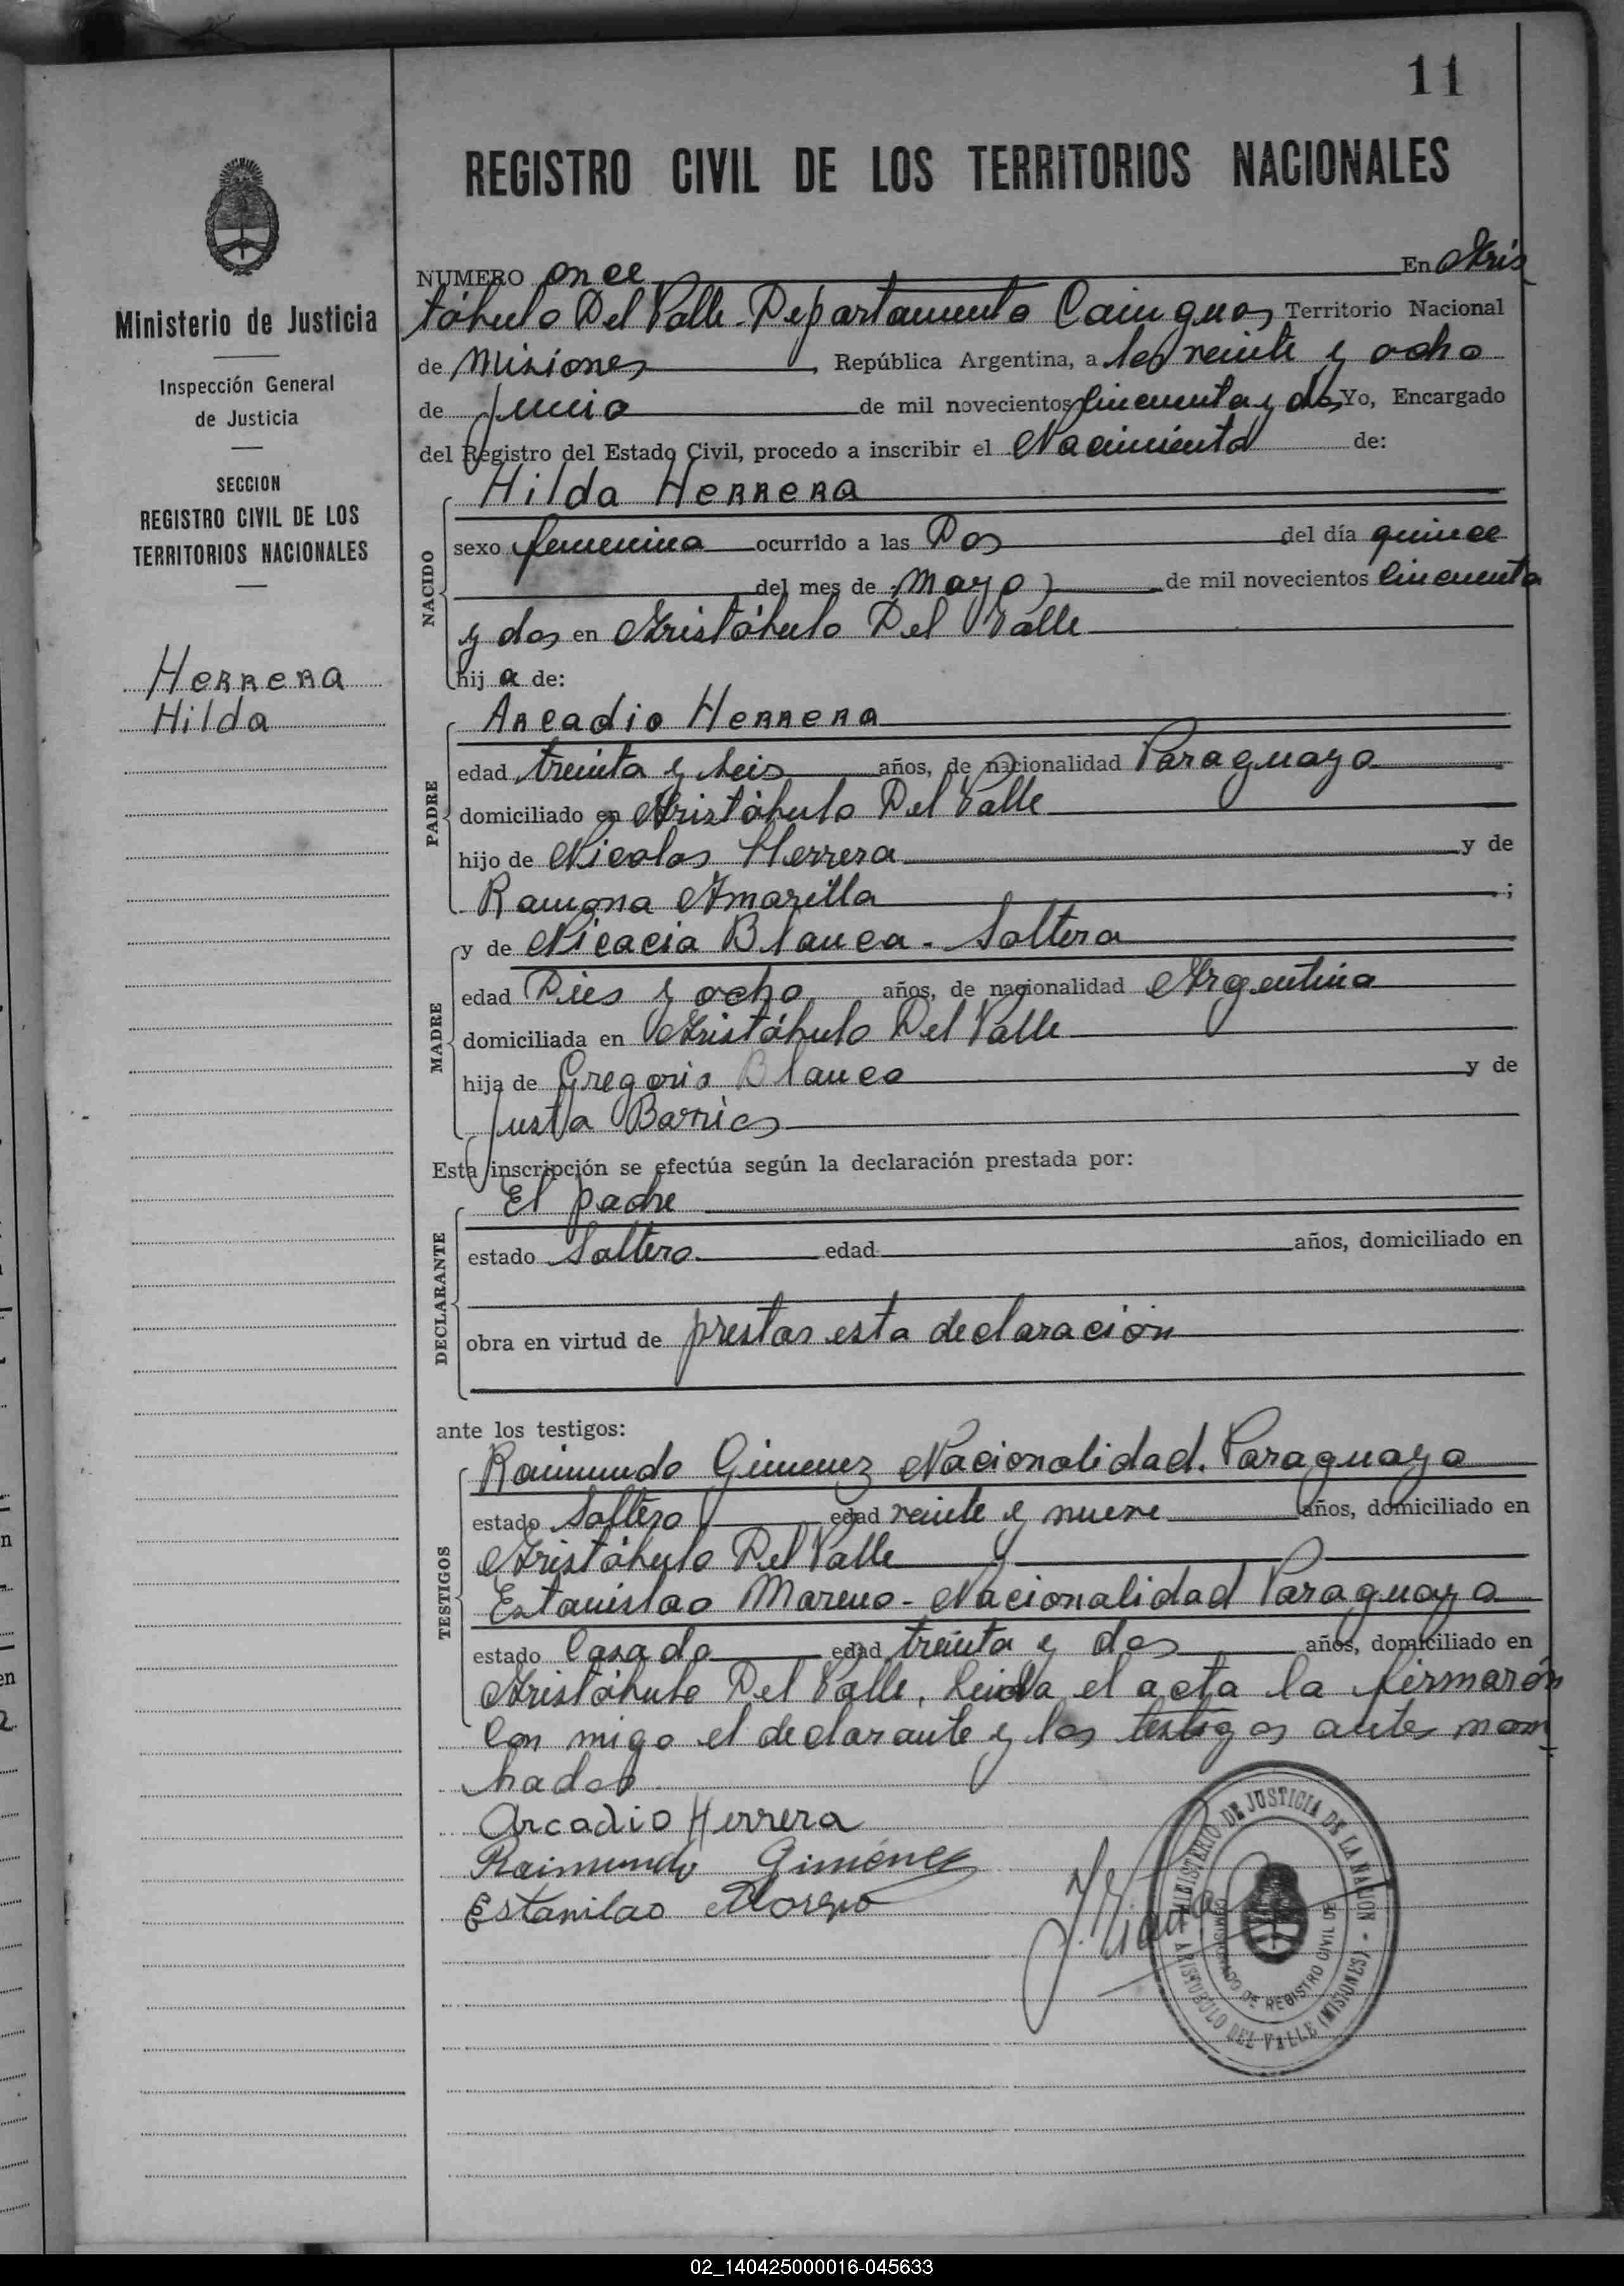 11
REGISTRO CIVIL DE LOS TERRITORIOS NACIONALES
Ministerio de Justicia
Inspección General
de Justicia
SECCION
REGISTRO CIVIL DE LOS
TERRITORIOS NACIONALES
Herrera
Hilda
NUMERO once En Aris
tóbulo Del Valle - Departamento Cainguas Territorio Nacional
de Misiones, República Argentina, a los veinte y ocho
de Junio de mil novecientos cincuenta y dos Yo, Encargado
del Registro del Estado Civil, procedo a inscribir el Nacimiento de:
NACIDO
Hilda Herrera
sexo femenina ocurrido a las Dos del día quince
del mes de Mayo de mil novecientos cincuenta
y dos en Aristóbulo Del Valle
hij a de:
PADRE
Arcadio Herrera
edad treinta y seis años, de nacionalidad Paraguaya
domiciliado en Aristóbulo Del Valle
hijo de Nicolas Herrera y de
Ramona Amarilla ;
MADRE
y de Nicacia Blanca - Soltera
edad Dies y ocho años, de nacionalidad Argentina
domiciliada en Aristóbulo Del Valle
hija de Gregorio Blanco y de
Justa Barrios
Esta inscripción se efectúa según la declaración prestada por:
DECLARANTE
El padre
estado Soltero edad años, domiciliado en
obra en virtud de prestar esta declaración
ante los testigos:
TESTIGOS
Raimundo Gimenez Nacionalidad. Paraguaya
estado Soltero edad veinte y nueve años, domiciliado en
Aristóbulo Del Valle y
Estanislao Moreno - Nacionalidad Paraguaya
estado Casado edad treinta y dos años, domiciliado en
Aristóbulo Del Valle, Leida el acta la firmarón
con migo el declarante y los testigos antes nom
brados
Arcadio Herrera
Raimundo Giménez
Estanilao Moreno
MINISTERIO DE JUSTICIA DE LA NACION - ARISTOBULO DEL VALLE (MISIONES)
DE REGISTRO CIVIL DE
02_140425000016-045633